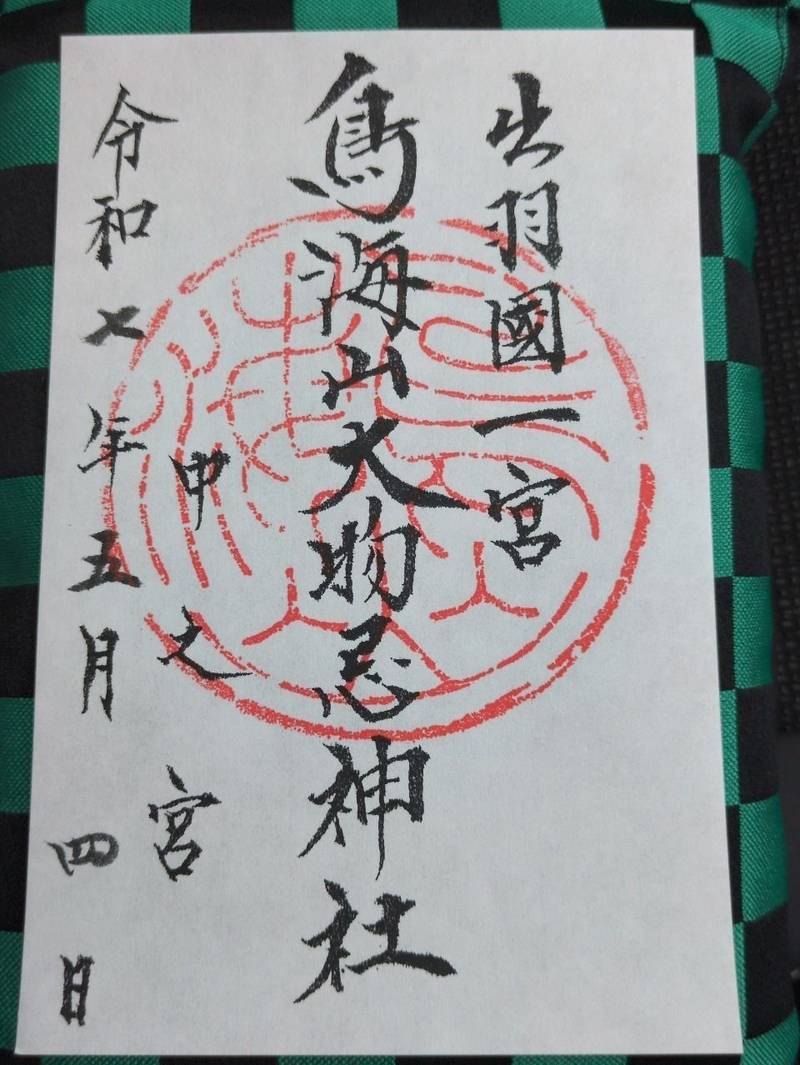 出羽國一宮
鳥海山大物忌神社
中之宮
令和七年五月四日